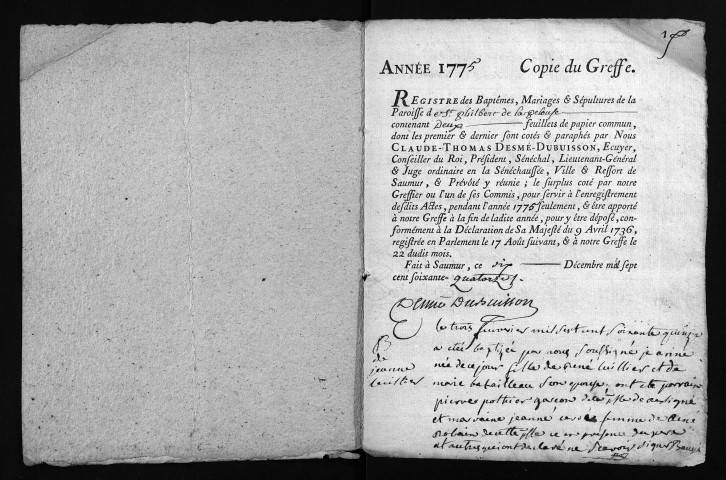 ANNÉE 1775 Copie du Greffe.
REGISTRE des Baptêmes, Mariages & Sépultures de la
Paroisse de St philbert de
contenant Deux feuillets de papier commun,
dont les premier & dernier sont cotés & paraphés par Nous
CLAUDE-THOMAS DESMÉ-DUBUISSON, Ecuyer,
Conseiller du Roi, Président, Sénéchal, Lieutenant-Général
& Juge ordinaire en la Sénéchaussée, Ville & Ressort de
Saumur, & Prévôté y réunie ; le surplus coté par notre
Greffier ou l'un de ses Commis, pour servir à l'enregistrement
desdits Actes, pendant l'année 1775 seulement, & être apporté
à notre Greffe à la fin de ladite année, pour y être déposé, con-
formément à la Déclaration de Sa Majesté du 9 Avril 1736,
registrée en Parlement le 17 Août suivant, & à notre Greffe le
22 dudit mois.
Fait à Saumur, ce dix Décembre mil sept
cent soixante-quatorze.
Desmé Dubuisson
le trois fevrier mil sept cent soixante quinze
B
de
jeanne
a etée baptizée par nous soussigné jeanne
née de ce jour fille de rené et de
marie son epouse, ont eté parrain
garçon de
et maraine jeanne femme de
de cette en presence du pere
et autres qui ont declaré ne scavoir signer